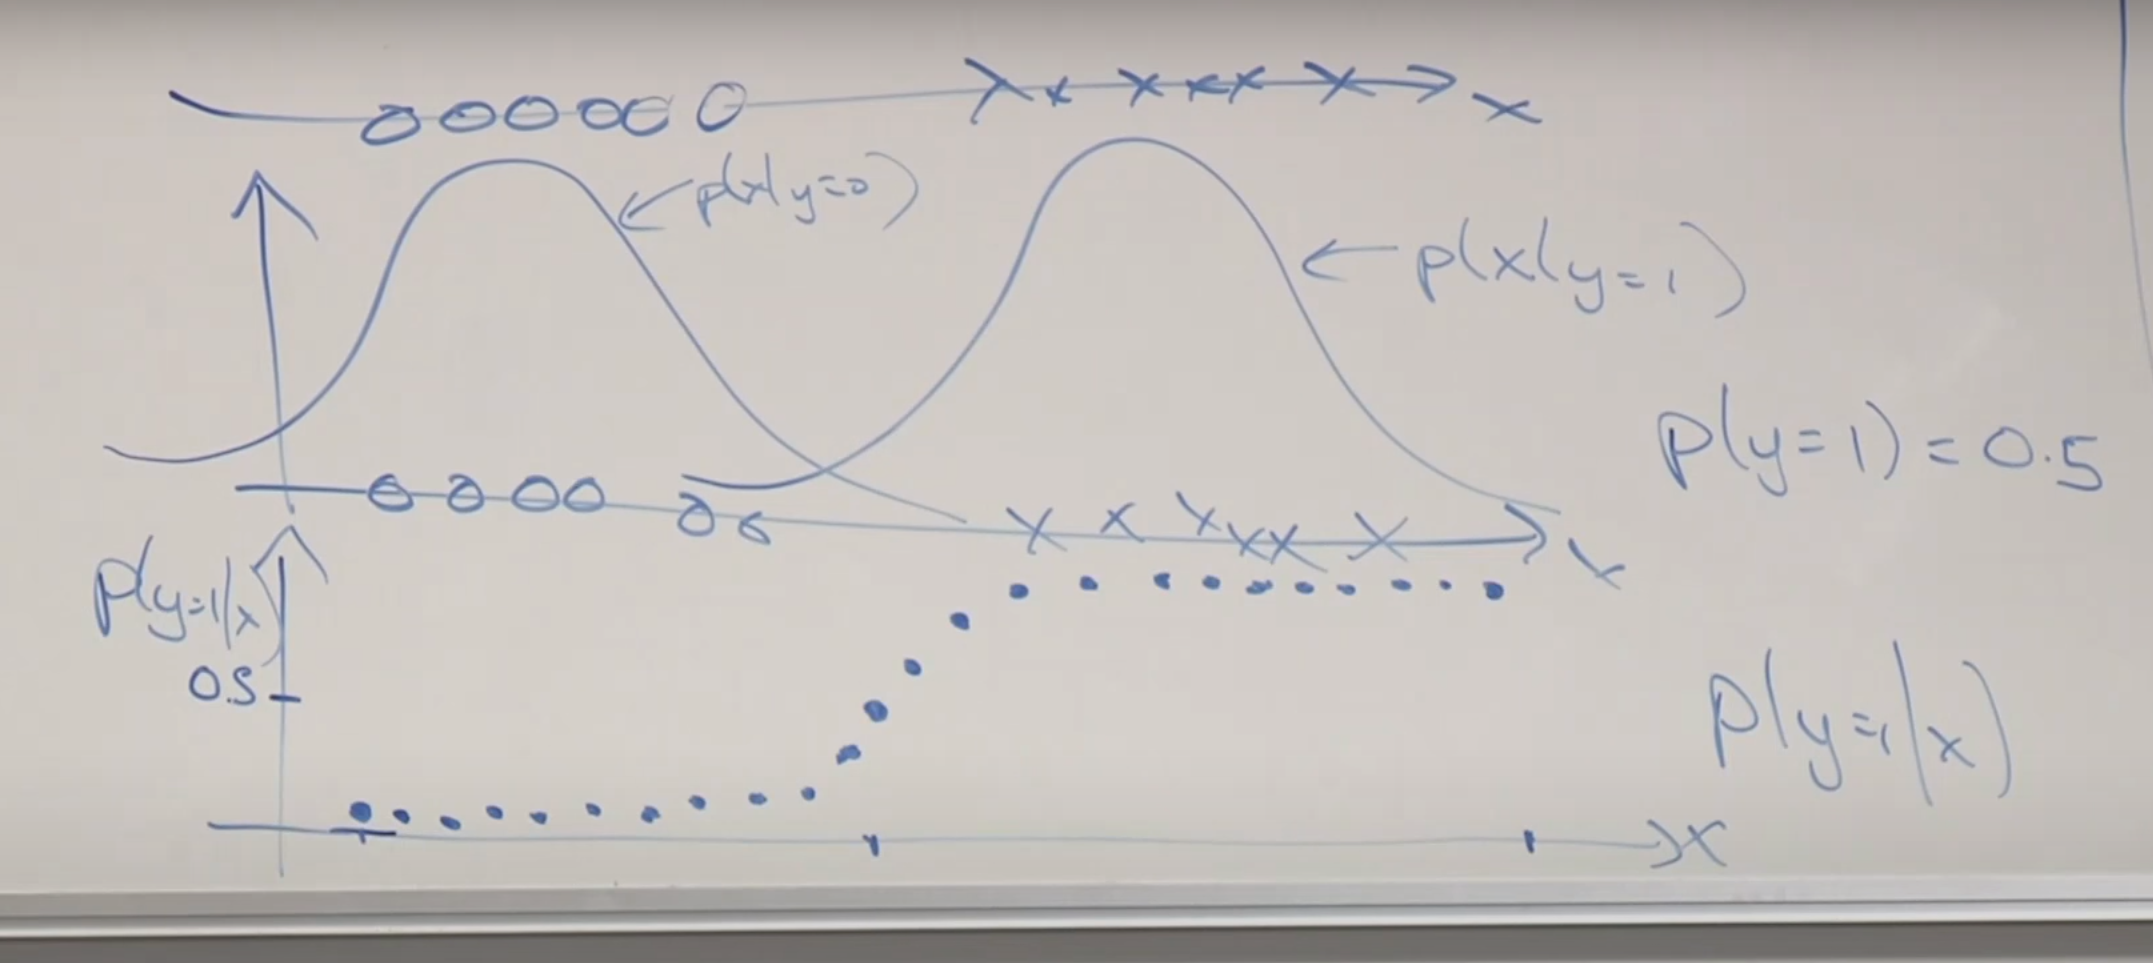 x
p(x|y=0)
p(x|y=1)
p(y=1) = 0.5
x
p(y=1|x)
0.5
p(y=1|x)
x